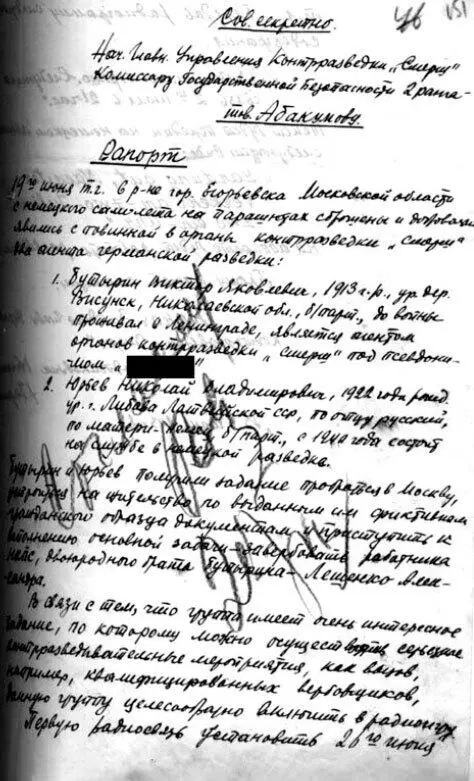 46 151
Сов. секретно.
Нач. Главн. Управления Контрразведки „Смерш"
Комиссару Государственной Безопасности 2 ранга
тов. Абакумову.
Рапорт
19го июня т.г. в р-не гор. Егорьевска Московской области
с немецкого самолета на парашютах сброшены и добровольно
явились с повинной в органы контрразведки „Смерш"
два агента германской разведки:
1. Бутырин Виктор Яковлевич, 1913 г.р., ур. дер.
Висунск, Николаевской обл., б/парт., до войны
проживал в Ленинграде, является агентом
органов контрразведки „Смерш" под псевдони-
мом „ "
2. Юрьев Николай Владимирович, 1922 года рожд.
ур. г. Либава Латвийской ССР, по отцу русский,
по матери - немец, б/парт., с 1940 года состоит
на службе в немецкой разведке.
Бутырин и Юрьев получили задание пробраться в Москву,
на жительство по выданным им фиктивным
гражданского образца документам и приступить к
выполнению основной задачи - завербовать работника
НКПС, двоюродного брата Бутырина - Лещенко Алек-
сандра.
В связи с тем, что группа имеет очень интересное
задание, по которому можно осуществить серьезные
контрразведывательные мероприятия, как вызов,
например, квалифицированных вербовщиков,
данную группу целесообразно включить в радиоигру
Первую радиосвязь установить 26го июня